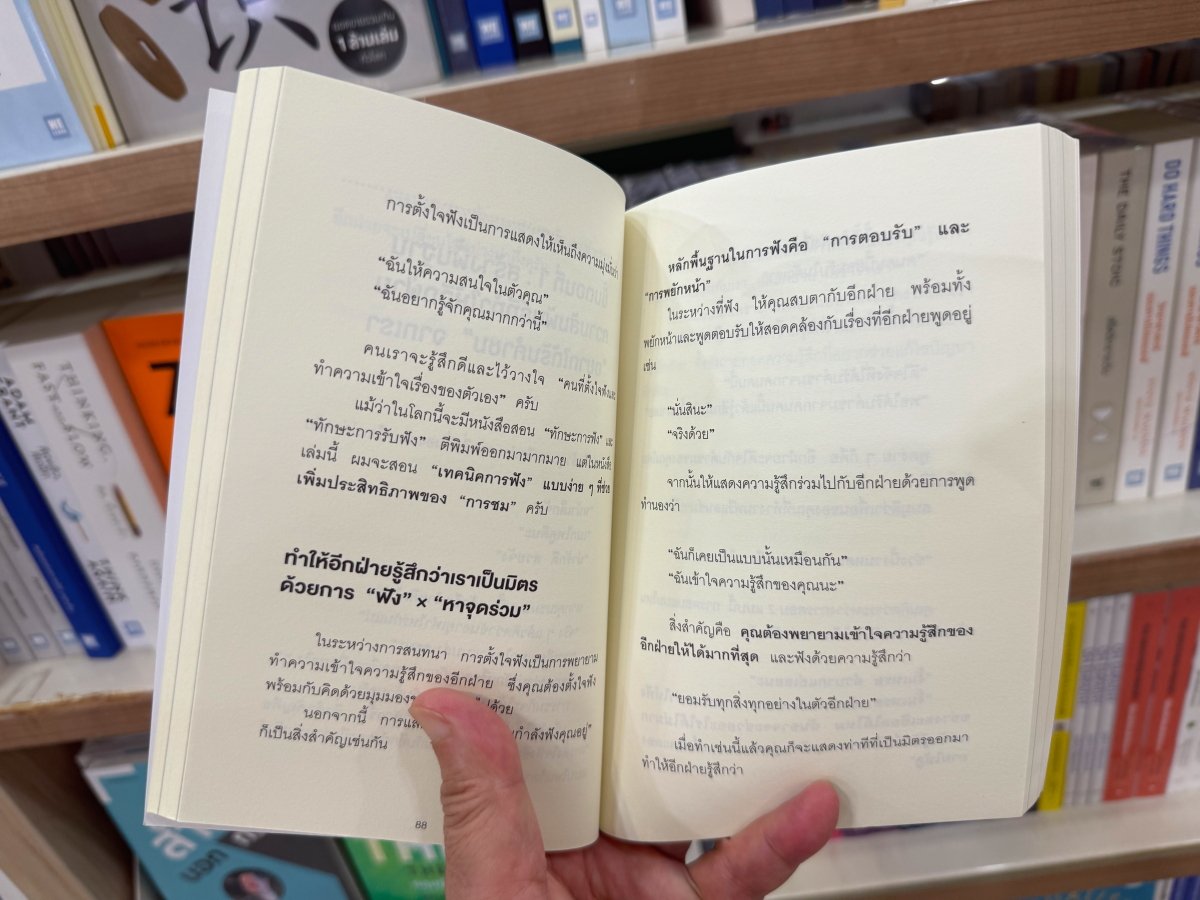 การตั้งใจฟังเป็นการแสดงให้เห็นถึงความมุ่งมั่นว่า
“ฉันให้ความสนใจในตัวคุณ”
“ฉันอยากรู้จักคุณมากกว่านี้”
คนเราจะรู้สึกดีและไว้วางใจ “คนที่ตั้งใจฟังและ
ทำความเข้าใจเรื่องของตัวเอง” ครับ
แม้ว่าในโลกนี้จะมีหนังสือสอน “ทักษะการฟัง” และ
“ทักษะการรับฟัง” ตีพิมพ์ออกมามากมาย แต่ในหนังสือ
เล่มนี้ ผมจะสอน “เทคนิคการฟัง” แบบง่าย ๆ ที่ช่วย
เพิ่มประสิทธิภาพของ “การชม” ครับ
ทำให้อีกฝ่ายรู้สึกว่าเราเป็นมิตร
ด้วยการ “ฟัง” × “หาจุดร่วม”
ในระหว่างการสนทนา การตั้งใจฟังเป็นการพยายาม
ทำความเข้าใจความรู้สึกของอีกฝ่าย ซึ่งคุณต้องตั้งใจฟัง
พร้อมกับคิดด้วยมุมมอง
นอกจากนี้ การ กำลังฟังคุณอยู่”
ก็เป็นสิ่งสำคัญเช่นกัน
88
หลักพื้นฐานในการฟังคือ “การตอบรับ” และ
“การพยักหน้า”
ในระหว่างที่ฟัง ให้คุณสบตากับอีกฝ่าย พร้อมทั้ง
พยักหน้าและพูดตอบรับให้สอดคล้องกับเรื่องที่อีกฝ่ายพูดอยู่
เช่น
“นั่นสินะ”
“จริงด้วย”
จากนั้นให้แสดงความรู้สึกร่วมไปกับอีกฝ่ายด้วยการพูด
ทำนองว่า
“ฉันก็เคยเป็นแบบนั้นเหมือนกัน”
“ฉันเข้าใจความรู้สึกของคุณนะ”
สิ่งสำคัญคือ คุณต้องพยายามเข้าใจความรู้สึกของ
อีกฝ่ายให้ได้มากที่สุด และฟังด้วยความรู้สึกว่า
“ยอมรับทุกสิ่งทุกอย่างในตัวอีกฝ่าย”
เมื่อทำเช่นนี้แล้วคุณก็จะแสดงท่าทีที่เป็นมิตรออกมา
ทำให้อีกฝ่ายรู้สึกว่า
1 ล้านเล่ม
THE DAILY STOIC
DO HARD THINGS
THINKING,
FAST and SLOW
ADAM
GRANT